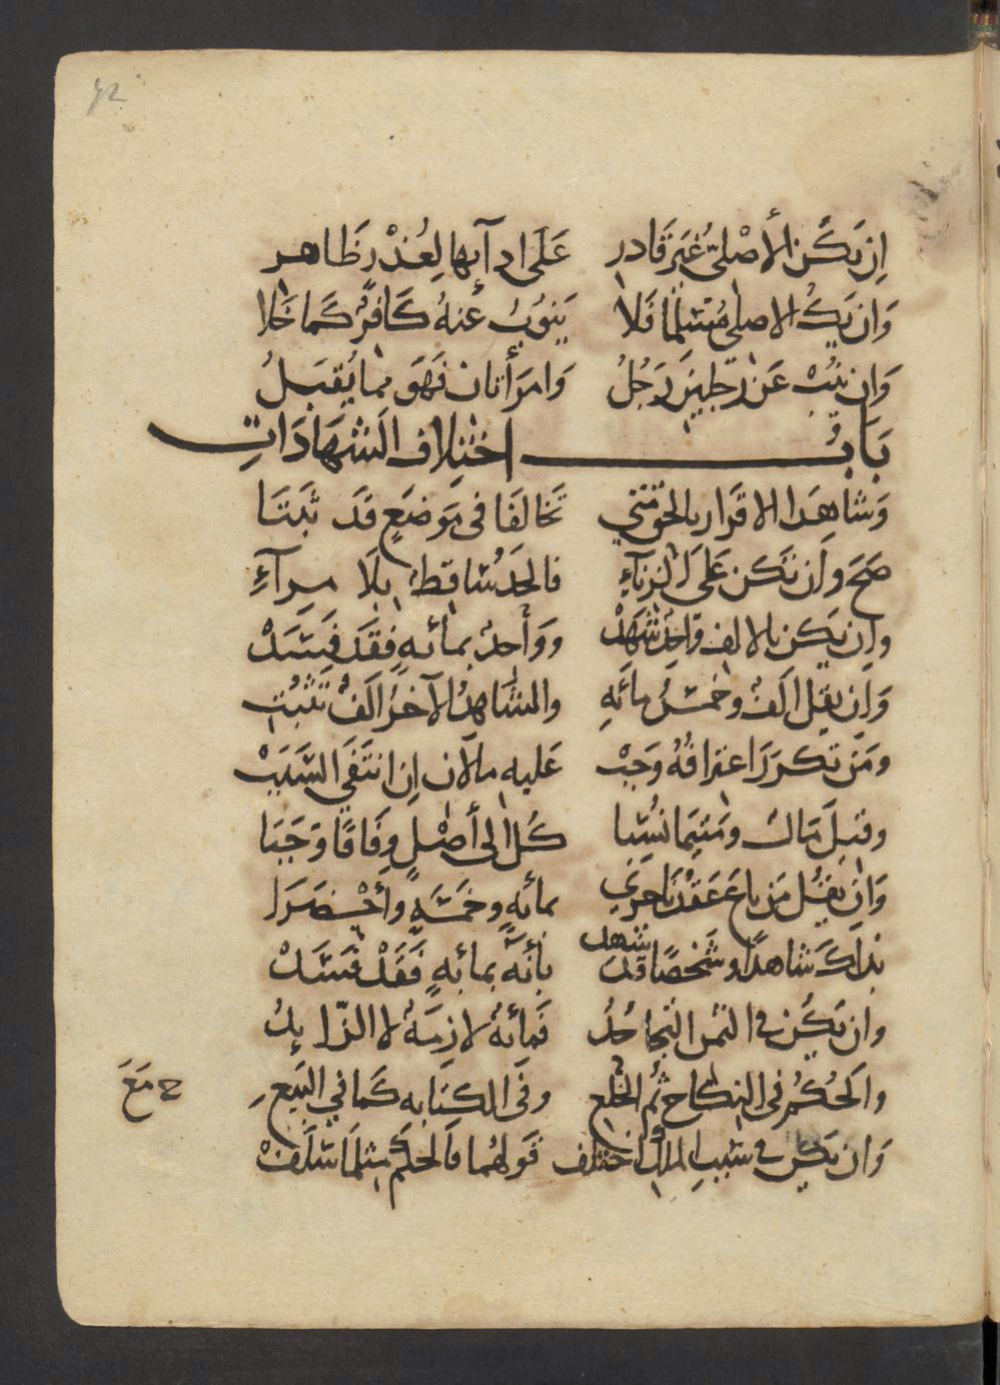 ٤٢
إن يكن الأصلي غير قادر على ادآيها لعذر ظاهر
وان يك الاصلي مسلما فلا ينوب عنه كافر كما خلا
وان تنب عن رجلين رجل وامرأتان فهو مما يقبل
باب اختلاف الشهادات
وشاهدا الاقرار بالحق متى تخالفا في موضع قد ثبتا
صح وان تكن على الزنآء فالحد ساقط بلا مرآء
وان يكن بالالف واحد شهد وواحد بمائه فقد فسد
وان يقل الف وخمس مائه والشاهد الآخر الف تثبت
ومن تكرر اعترافه وجب عليه مالان إن انتفى السبب
وقيل مال ومتيما نسبا كل الى أصل وفاقا وجبا
وان يقل من باع عقدنا جرى بمائه وخمسة وأحضرا
بذاك شاهدا وشخصا قد شهد بأنه بمائه فقد فسد
وان يكن في الثمن التجاحد فمائه لازمه لا الزايد
والحكم في النكاح ثم الخلع وفي الكتابه كما في البيع
مع
وان يكن في سبب الملك اختلف قولهما فالحكم مثلما سلف